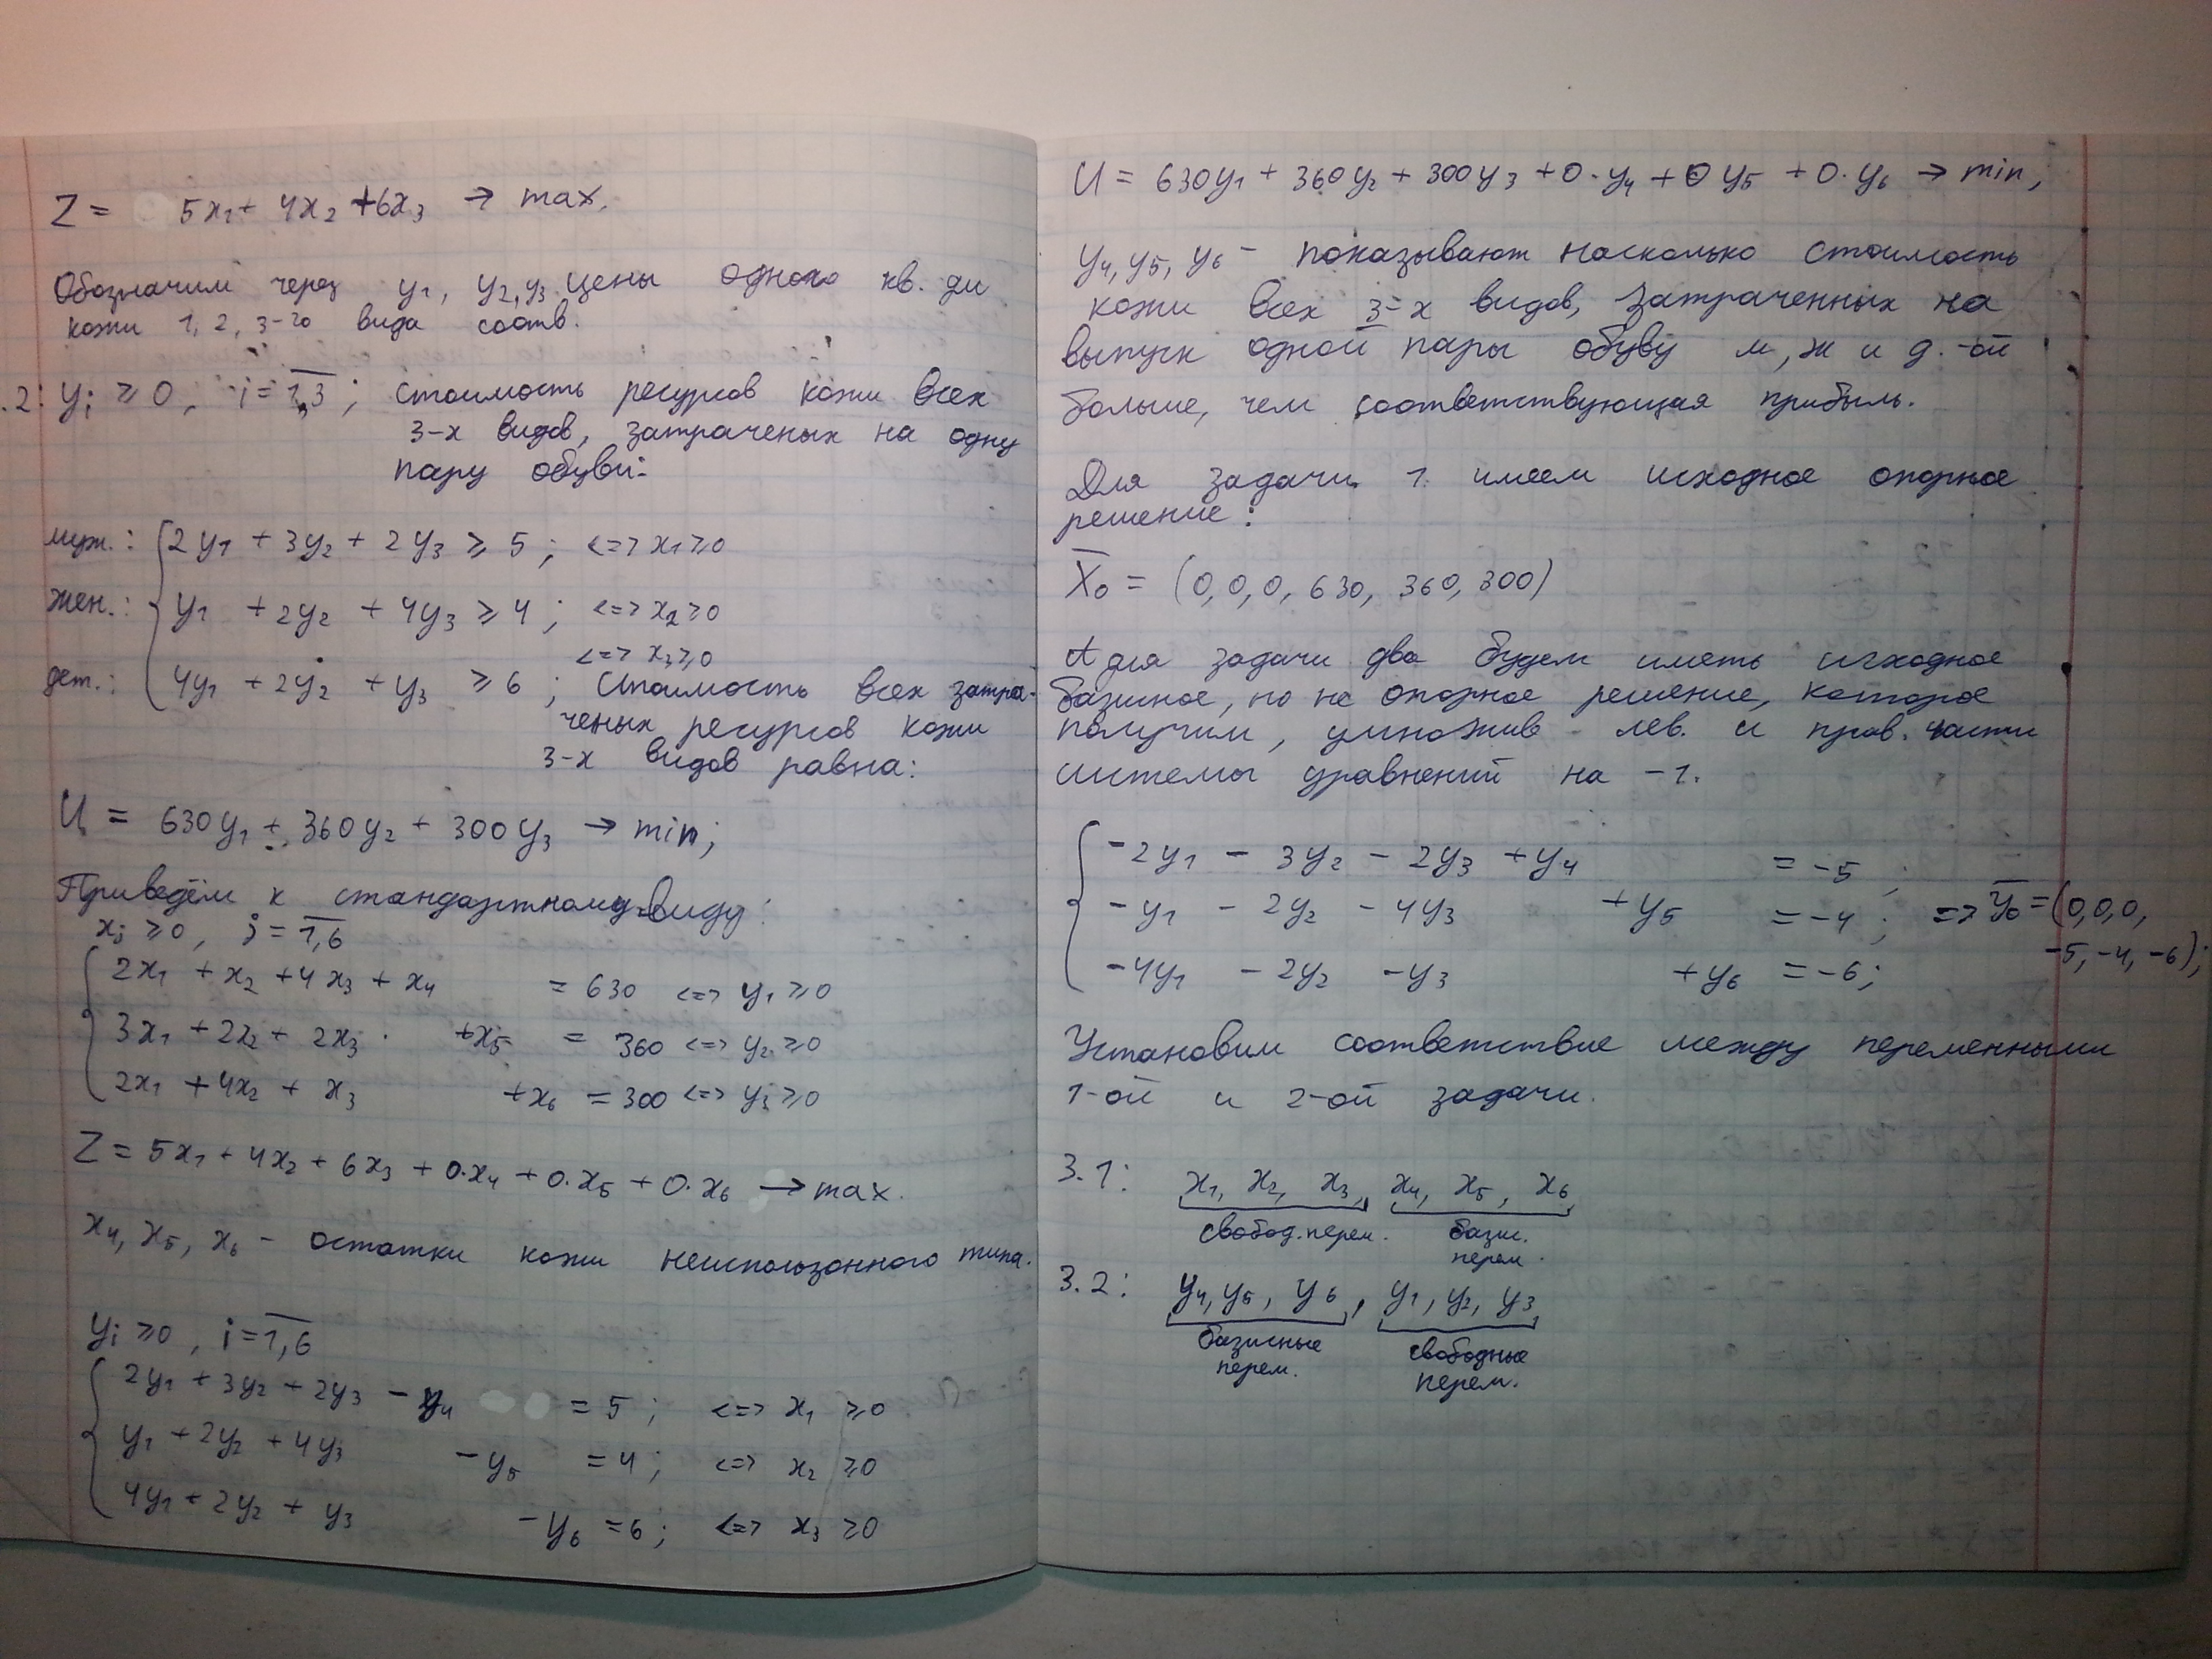 Z = 5x₁ + 4x₂ + 6x₃ → max.
Обозначим через y₁, y₂, y₃ цены одного кв. дм
кожи 1, 2, 3-го вида соотв.
.2: yᵢ ≥ 0, i = 1,3; стоимость ресурсов кожи всех
3-х видов, затраченых на одну
пару обуви:
муж.: 2y₁ + 3y₂ + 2y₃ ≥ 5; <=> x₁ ≥ 0
жен.: y₁ + 2y₂ + 4y₃ ≥ 4; <=> x₂ ≥ 0
<=> x₃ ≥ 0
дет.: 4y₁ + 2y₂ + y₃ ≥ 6; Стоимость всех затра-
ченых ресурсов кожи
3-х видов равна:
U = 630y₁ + 360y₂ + 300y₃ → min;
Приведём к стандартному виду:
xⱼ ≥ 0, j = 1,6
2x₁ + x₂ + 4x₃ + x₄ = 630 <=> y₁ ≥ 0
3x₁ + 2x₂ + 2x₃ + x₅ = 360 <=> y₂ ≥ 0
2x₁ + 4x₂ + x₃ + x₆ = 300 <=> y₃ ≥ 0
Z = 5x₁ + 4x₂ + 6x₃ + 0·x₄ + 0·x₅ + 0·x₆ → max.
x₄, x₅, x₆ - остатки кожи неиспользонного типа.
yᵢ ≥ 0, i = 1,6
2y₁ + 3y₂ + 2y₃ - y₄ = 5; <=> x₁ ≥ 0
y₁ + 2y₂ + 4y₃ - y₅ = 4; <=> x₂ ≥ 0
4y₁ + 2y₂ + y₃ - y₆ = 6; <=> x₃ ≥ 0
U = 630y₁ + 360y₂ + 300y₃ + 0·y₄ + 0y₅ + 0·y₆ → min;
y₄, y₅, y₆ - показывают насколько стоимость
кожи всех 3-х видов, затраченных на
выпуск одной пары обуву м, ж и д.-ой
больше, чем соответствующая прибыль.
Для задачи 1. имеем исходное опорное
решение:
X₀ = (0, 0, 0, 630, 360, 300)
А для задачи два будем иметь исходное
базисное, но не опорное решение, которое
получим, умножив лев. и прав. части
системы уравнений на -1.
-2y₁ - 3y₂ - 2y₃ + y₄ = -5;
-y₁ - 2y₂ - 4y₃ + y₅ = -4; => Y₀ = (0, 0, 0,
-5, -4, -6);
-4y₁ - 2y₂ - y₃ + y₆ = -6;
Установим соответствие между переменными
1-ой и 2-ой задачи.
3.1: x₁, x₂, x₃, x₄, x₅, x₆
свобод. перем. базис.
перем.
3.2: y₄, y₅, y₆, y₁, y₂, y₃
базисные свободные
перем. перем.